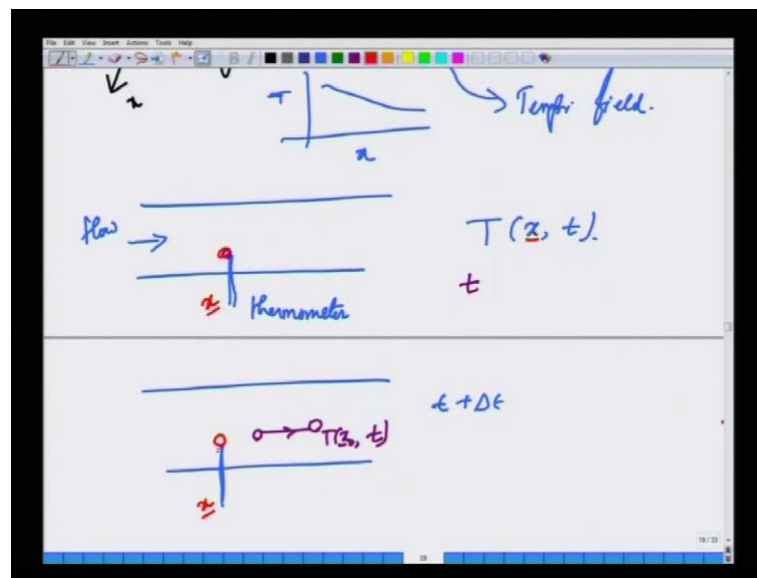 File Edit View Insert Actions Tools Help
B I
x
T
x
Tempr field.
flow
T(x, t).
t
x
thermometer
t + Δt
T(x₀, t)
x
19 / 33
19